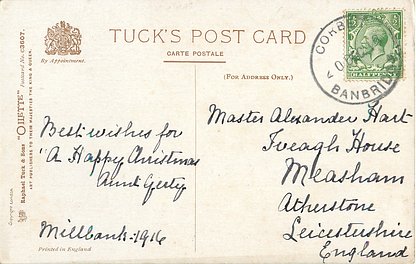 TUCK'S POST CARD
CARTE POSTALE
By Appointment.
(FOR ADDRESS ONLY.)
Raphael Tuck & Sons "OILETTE" Postcard No. C3607.
ART PUBLISHERS TO THEIR MAJESTIES THE KING & QUEEN.
Copyright London.
Best wishes for
"A Happy Christmas
Aunt Gerty
Millbank - 1916
Printed in England
CORB
BANBRI
HALFPENNY
Master Alexander Hart
Iveagh House
Measham
Atherstone
Leicestershire
England